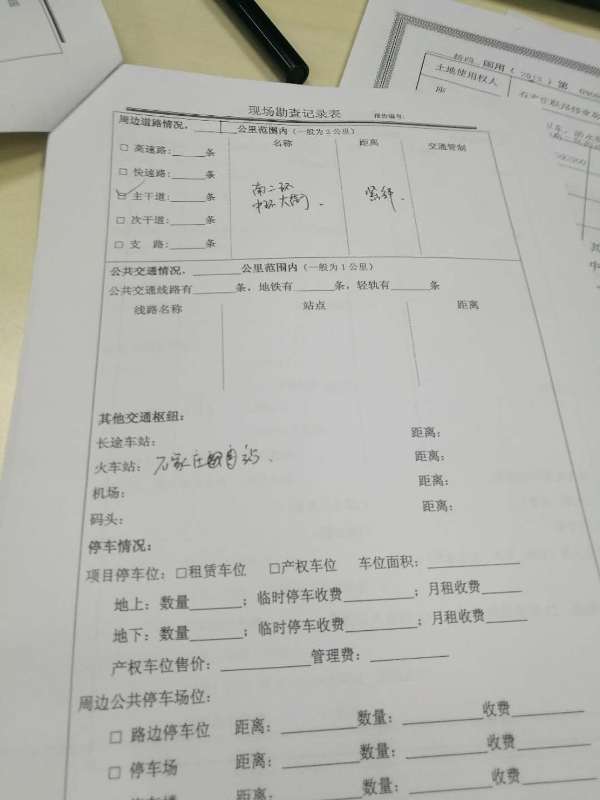 土地使用权人
座
现场勘查记录表
报告编号:
周边道路情况, ______公里范围内(一般为2公里)
名称 距离 交通管制
□ 高速路:______条
□ 快速路:______条
□ 主干道:______条
南二环
中环大街
紧邻
□ 次干道:______条
□ 支 路:______条
公共交通情况, ______公里范围内(一般为1公里)
公共交通线路有______条, 地铁有______条, 轻轨有______条
线路名称 站点 距离
其他交通枢纽:
长途车站: 距离:
火车站: 石家庄 距离:
机场: 距离:
码头: 距离:
停车情况:
项目停车位: □租赁车位 □产权车位 车位面积: ______
地上: 数量______; 临时停车收费______; 月租收费______
地下: 数量______; 临时停车收费______; 月租收费______
产权车位售价: ______ 管理费: ______
周边公共停车场位:
□ 路边停车位 距离: ______ 数量: ______ 收费______
□ 停车场 距离: ______ 数量: ______ 收费______
□ 停车楼 距离: ______ 数量: ______ 收费______